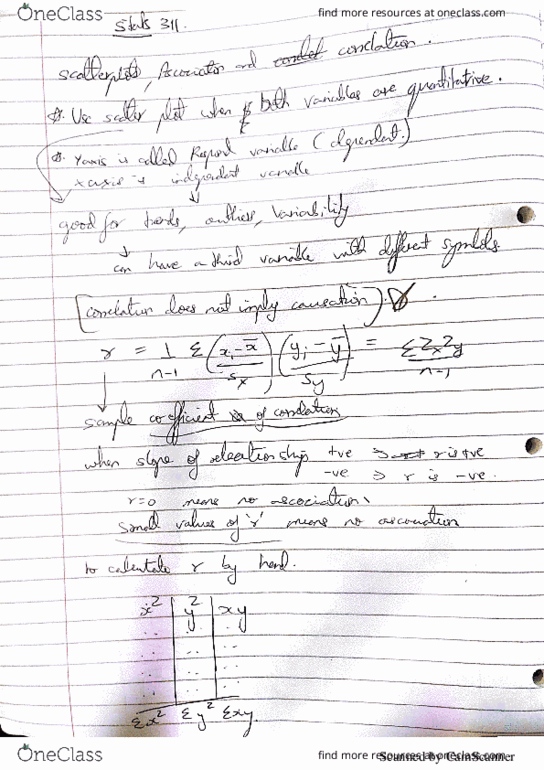 OneClass
find more resources at oneclass.com
Stats 311.
Scatterplots, Association and correlation.
Use scatter plot when both variables are quantitative.
Yaxis is called variable (dependent)
x axis is independent variable
good for trends, outliers, Variability
can have a third variable with different symbols
(correlation does not imply causation)
r = 1/n-1 Σ (xi - x̄ / Sx) (yi - ȳ / Sy) = ΣZxZy / n-1
sample coefficient of correlation
when slope of relationship +ve ⇒ r is +ve
-ve ⇒ r is -ve.
r=0 means no association.
small values of 'r' means no association
to calculate r by hand.
x² y² xy
Σx² Σy² Σxy.
OneClass
find more resources at oneclass.com
Scanned by CamScanner